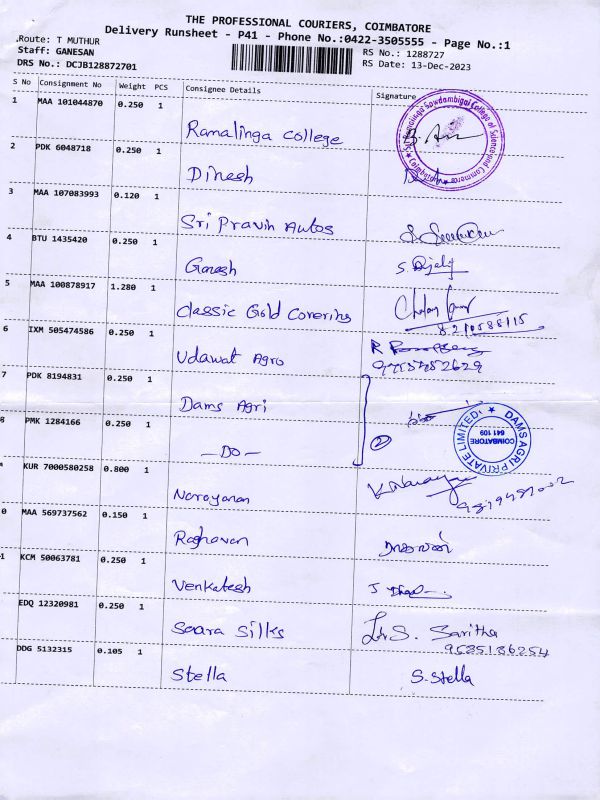 THE PROFESSIONAL COURIERS, COIMBATORE
Delivery Runsheet - P41 - Phone No.:0422-3505555 - Page No.:1
.Route: T MUTHUR
Staff: GANESAN
DRS No.: DCJB128872701
RS No.: 1288727
RS Date: 13-Dec-2023
S No Consignment No Weight PCS Consignee Details Signature
1 MAA 101044870 0.250 1 Ramalinga College
2 PDK 6048718 0.250 1 Dinesh
3 MAA 107083993 0.120 1 Sri Pravin Autos
4 BTU 1435420 0.250 1 Ganesh
5 MAA 100878917 1.280 1 Classic Gold Covering
6 IXM 505474586 0.250 1 Udawat Agro
7 PDK 8194831 0.250 1 Dams Agri
8 PMK 1284166 0.250 1 — DO — 2
DAMS AGRI PRIVATE LIMITED
COIMBATORE
641 109
KUR 7000580258 0.800 1 Narayanan
0 MAA 569737562 0.150 1 Raghavan
1 KCM 50063781 0.250 1 Venkatesh
EDQ 12320981 0.250 1 Seara Silks S. Saritha
9585136254
DDG 5132315 0.105 1 Stella S. Stella